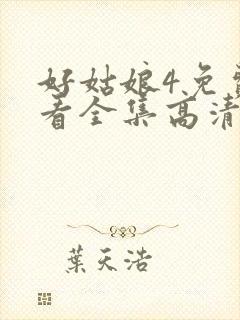 好姑娘4免
看全集高清
葉天浩